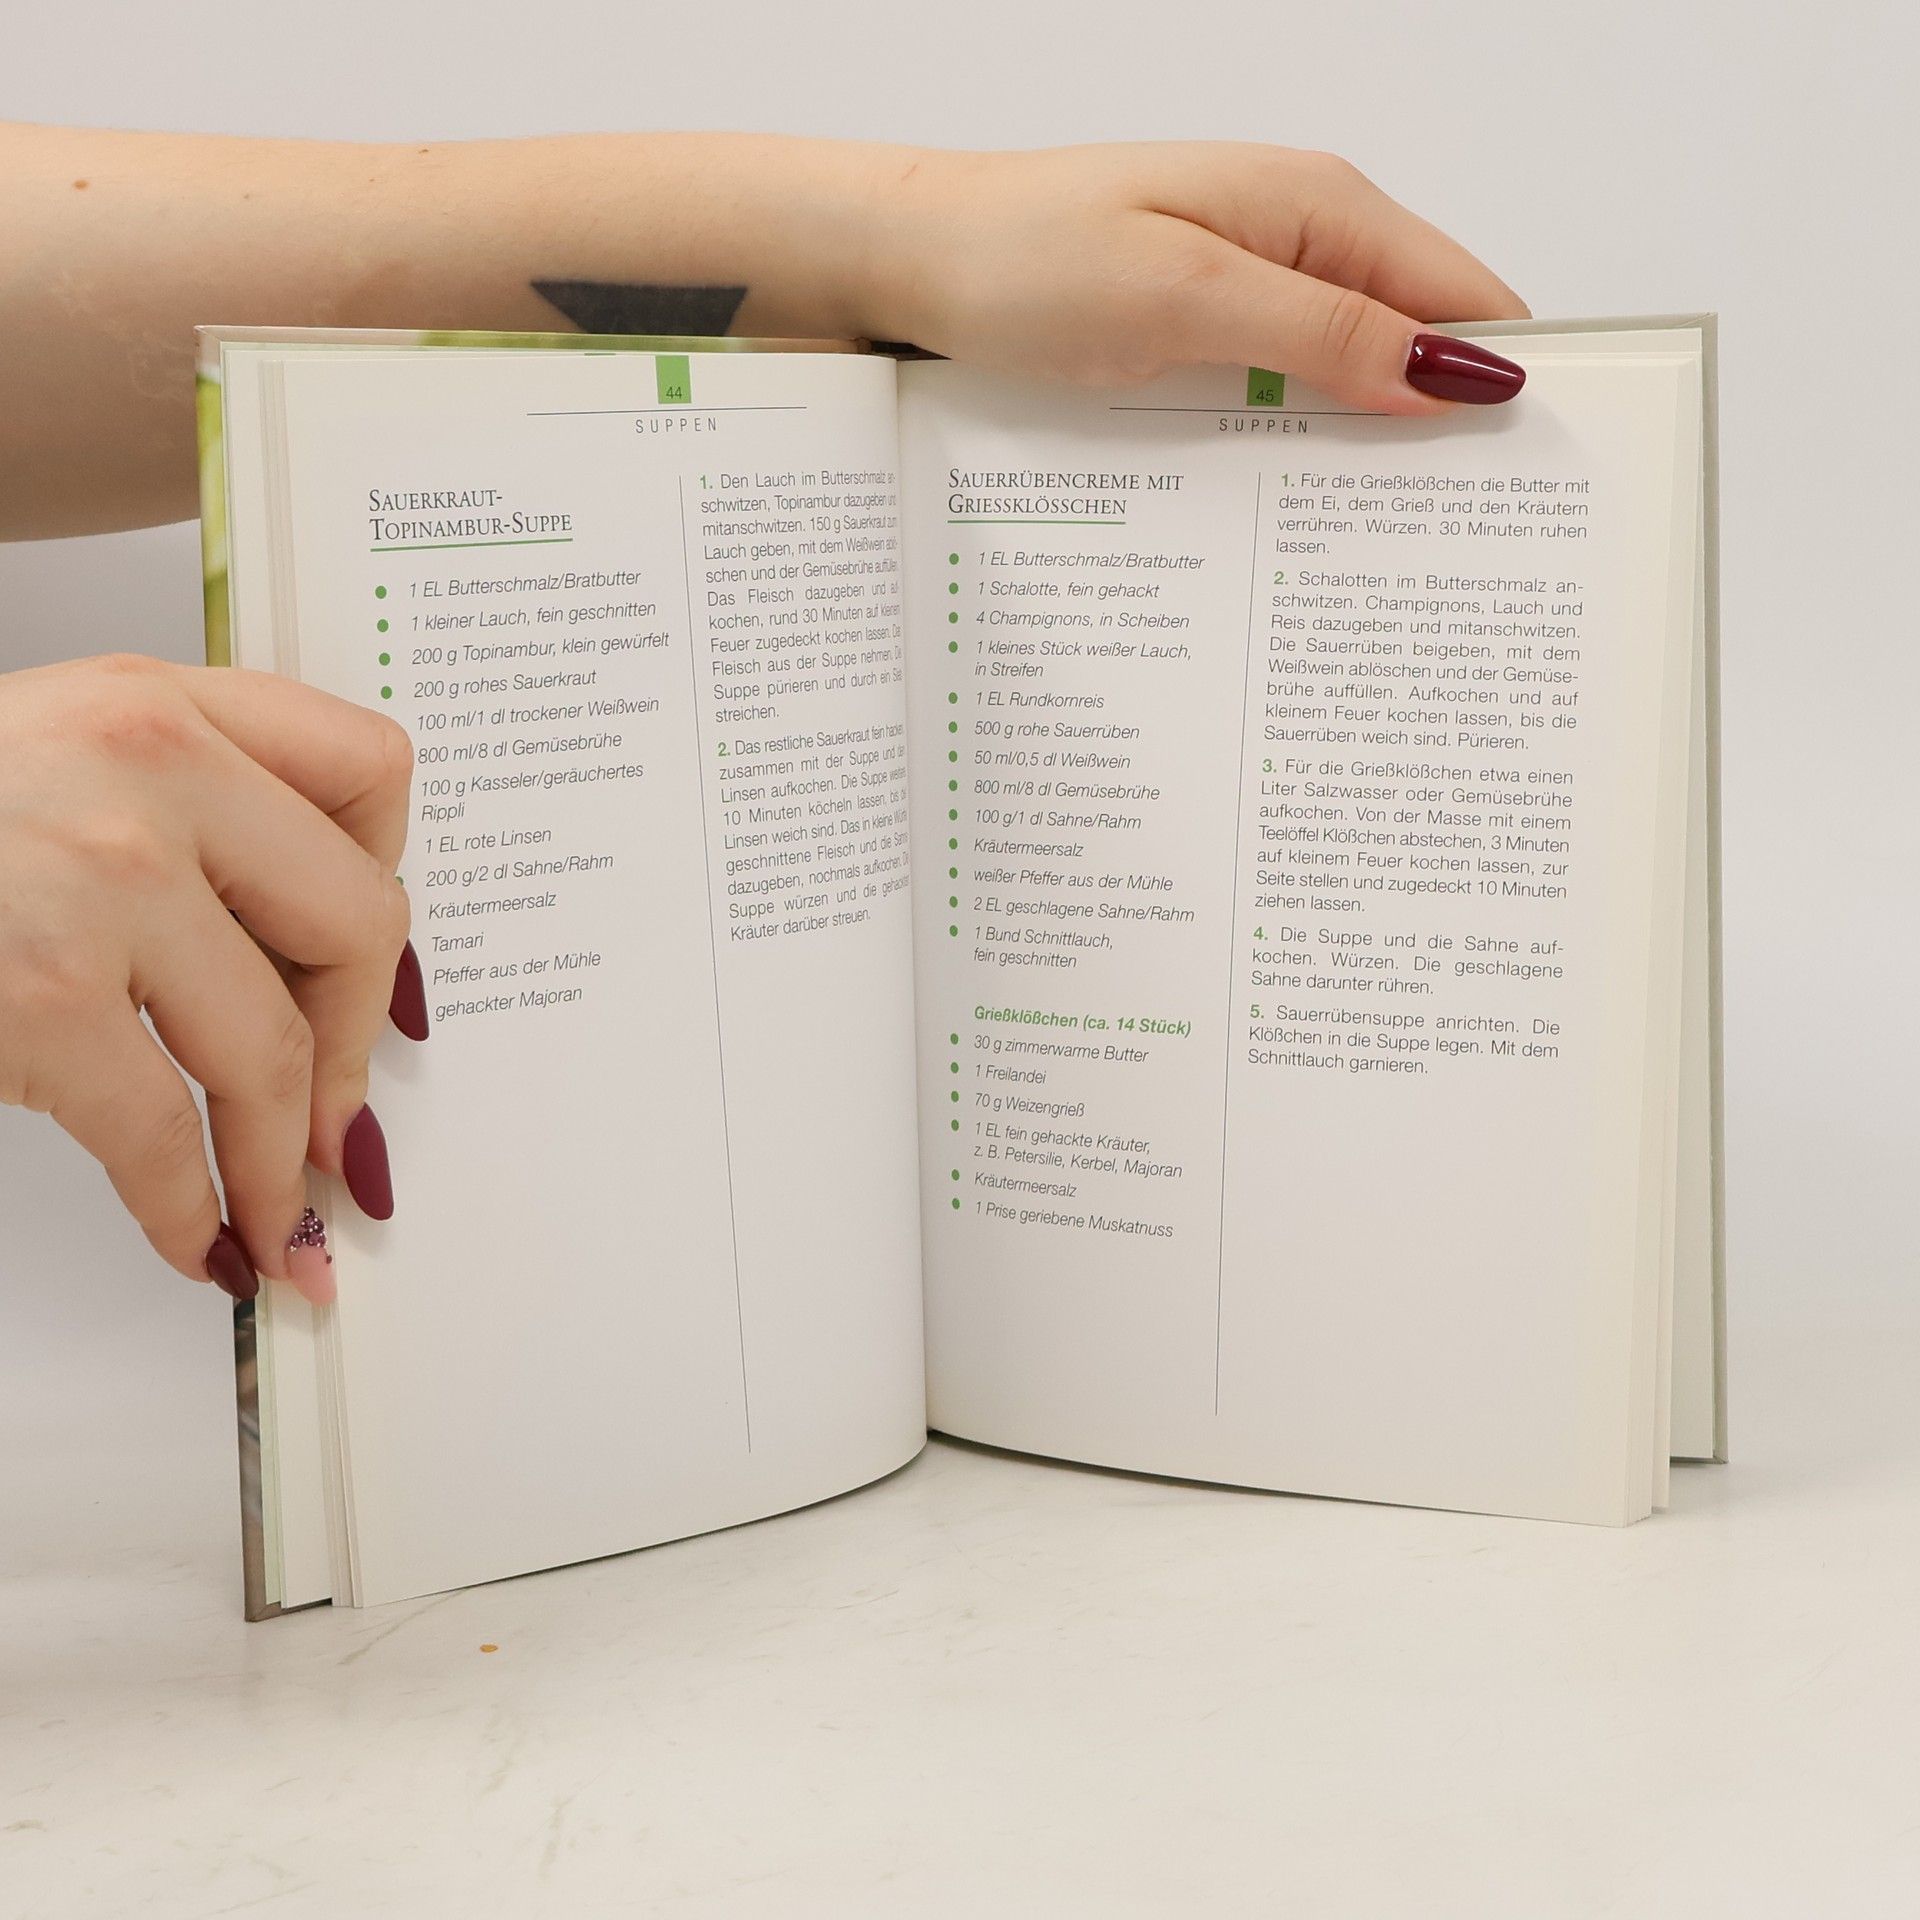 44
SUPPEN
SAUERKRAUT-
TOPINAMBUR-SUPPE
1 EL Butterschmalz/Bratbutter
1 kleiner Lauch, fein geschnitten
200 g Topinambur, klein gewürfelt
200 g rohes Sauerkraut
100 ml/1 dl trockener Weißwein
800 ml/8 dl Gemüsebrühe
100 g Kasseler/geräuchertes
Rippli
1 EL rote Linsen
200 g/2 dl Sahne/Rahm
Kräutermeersalz
Tamari
Pfeffer aus der Mühle
gehackter Majoran
1. Den Lauch im Butterschmalz an-
schwitzen, Topinambur dazugeben und
mitanschwitzen. 150 g Sauerkraut zum
Lauch geben, mit dem Weißwein ablö-
schen und der Gemüsebrühe auffüllen.
Das Fleisch dazugeben und auf-
kochen, rund 30 Minuten auf kleinem
Feuer zugedeckt kochen lassen. Das
Fleisch aus der Suppe nehmen. Die
Suppe pürieren und durch ein Sieb
streichen.
2. Das restliche Sauerkraut fein hacken,
zusammen mit der Suppe und den
Linsen aufkochen. Die Suppe weitere
10 Minuten köcheln lassen, bis die
Linsen weich sind. Das in kleine Würfel
geschnittene Fleisch und die Sahne
dazugeben, nochmals aufkochen. Die
Suppe würzen und die gehackten
Kräuter darüber streuen.
45
SUPPEN
SAUERRÜBENCREME MIT
GRIESSKLÖSSCHEN
1 EL Butterschmalz/Bratbutter
1 Schalotte, fein gehackt
4 Champignons, in Scheiben
1 kleines Stück weißer Lauch,
in Streifen
1 EL Rundkornreis
500 g rohe Sauerrüben
50 ml/0,5 dl Weißwein
800 ml/8 dl Gemüsebrühe
100 g/1 dl Sahne/Rahm
Kräutermeersalz
weißer Pfeffer aus der Mühle
2 EL geschlagene Sahne/Rahm
1 Bund Schnittlauch,
fein geschnitten
Grießklößchen (ca. 14 Stück)
30 g zimmerwarme Butter
1 Freilandei
70 g Weizengrieß
1 EL fein gehackte Kräuter,
z. B. Petersilie, Kerbel, Majoran
Kräutermeersalz
1 Prise geriebene Muskatnuss
1. Für die Grießklößchen die Butter mit
dem Ei, dem Grieß und den Kräutern
verrühren. Würzen. 30 Minuten ruhen
lassen.
2. Schalotten im Butterschmalz an-
schwitzen. Champignons, Lauch und
Reis dazugeben und mitanschwitzen.
Die Sauerrüben beigeben, mit dem
Weißwein ablöschen und der Gemüse-
brühe auffüllen. Aufkochen und auf
kleinem Feuer kochen lassen, bis die
Sauerrüben weich sind. Pürieren.
3. Für die Grießklößchen etwa einen
Liter Salzwasser oder Gemüsebrühe
aufkochen. Von der Masse mit einem
Teelöffel Klößchen abstechen, 3 Minuten
auf kleinem Feuer kochen lassen, zur
Seite stellen und zugedeckt 10 Minuten
ziehen lassen.
4. Die Suppe und die Sahne auf-
kochen. Würzen. Die geschlagene
Sahne darunter rühren.
5. Sauerrübensuppe anrichten. Die
Klößchen in die Suppe legen. Mit dem
Schnittlauch garnieren.